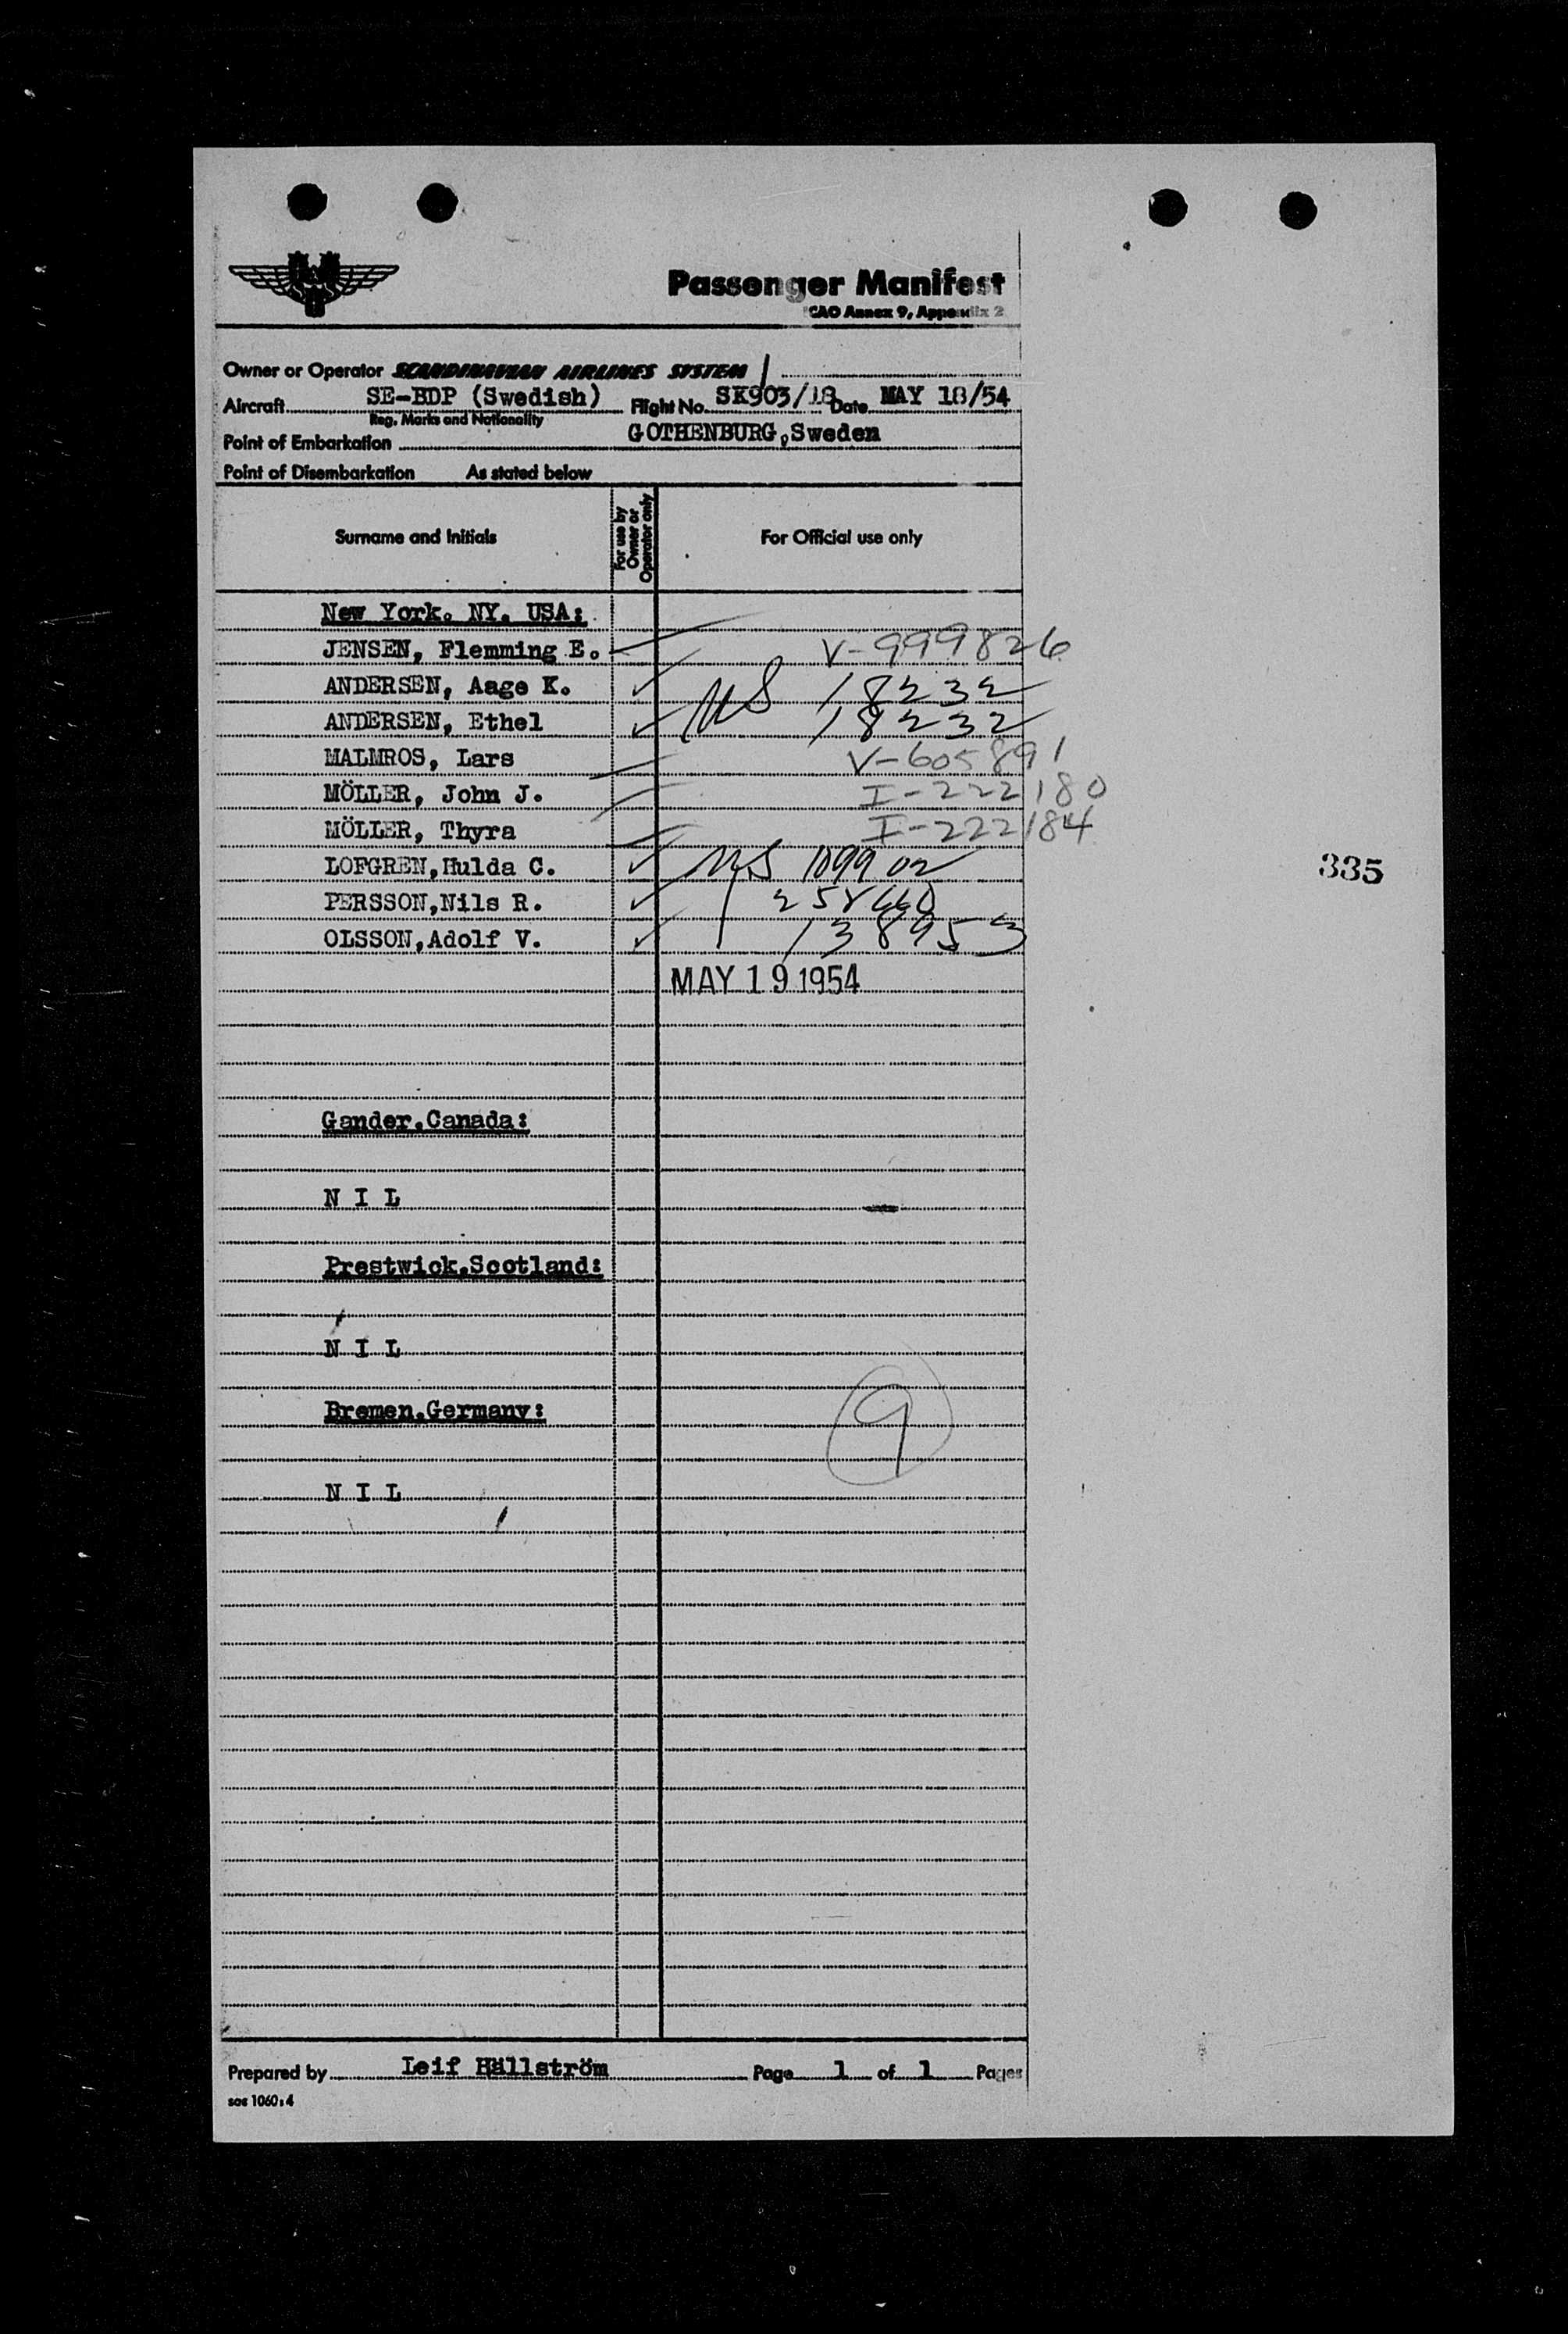 Passenger Manifest
ICAO Annex 9, Appendix 2
Owner or Operator SCANDINAVIAN AIRLINES SYSTEM
Aircraft SE-BDP (Swedish) Flight No. SK903/18 Date MAY 18/54
Reg. Marks and Nationality
Point of Embarkation GOTHENBURG,Sweden
Point of Disembarkation As stated below
Surname and Initials For use by Owner or Operator only For Official use only
New York. NY. USA:
JENSEN, Flemming E. V-999826
ANDERSEN, Aage K. US 18232
ANDERSEN, Ethel 18232
MALMROS, Lars V-605891
MÖLLER, John J. I-222180
MÖLLER, Thyra I-222184
LOFGREN,Hulda C. US 109902
PERSSON,Nils R.
OLSSON,Adolf V. 138953
335
MAY 19 1954
Gander.Canada:
N I L
Prestwick.Scotland:
N I L
9
Bremen.Germany:
N I L
Prepared by Leif Hällström Page 1 of 1 Pages
sas 1060:4